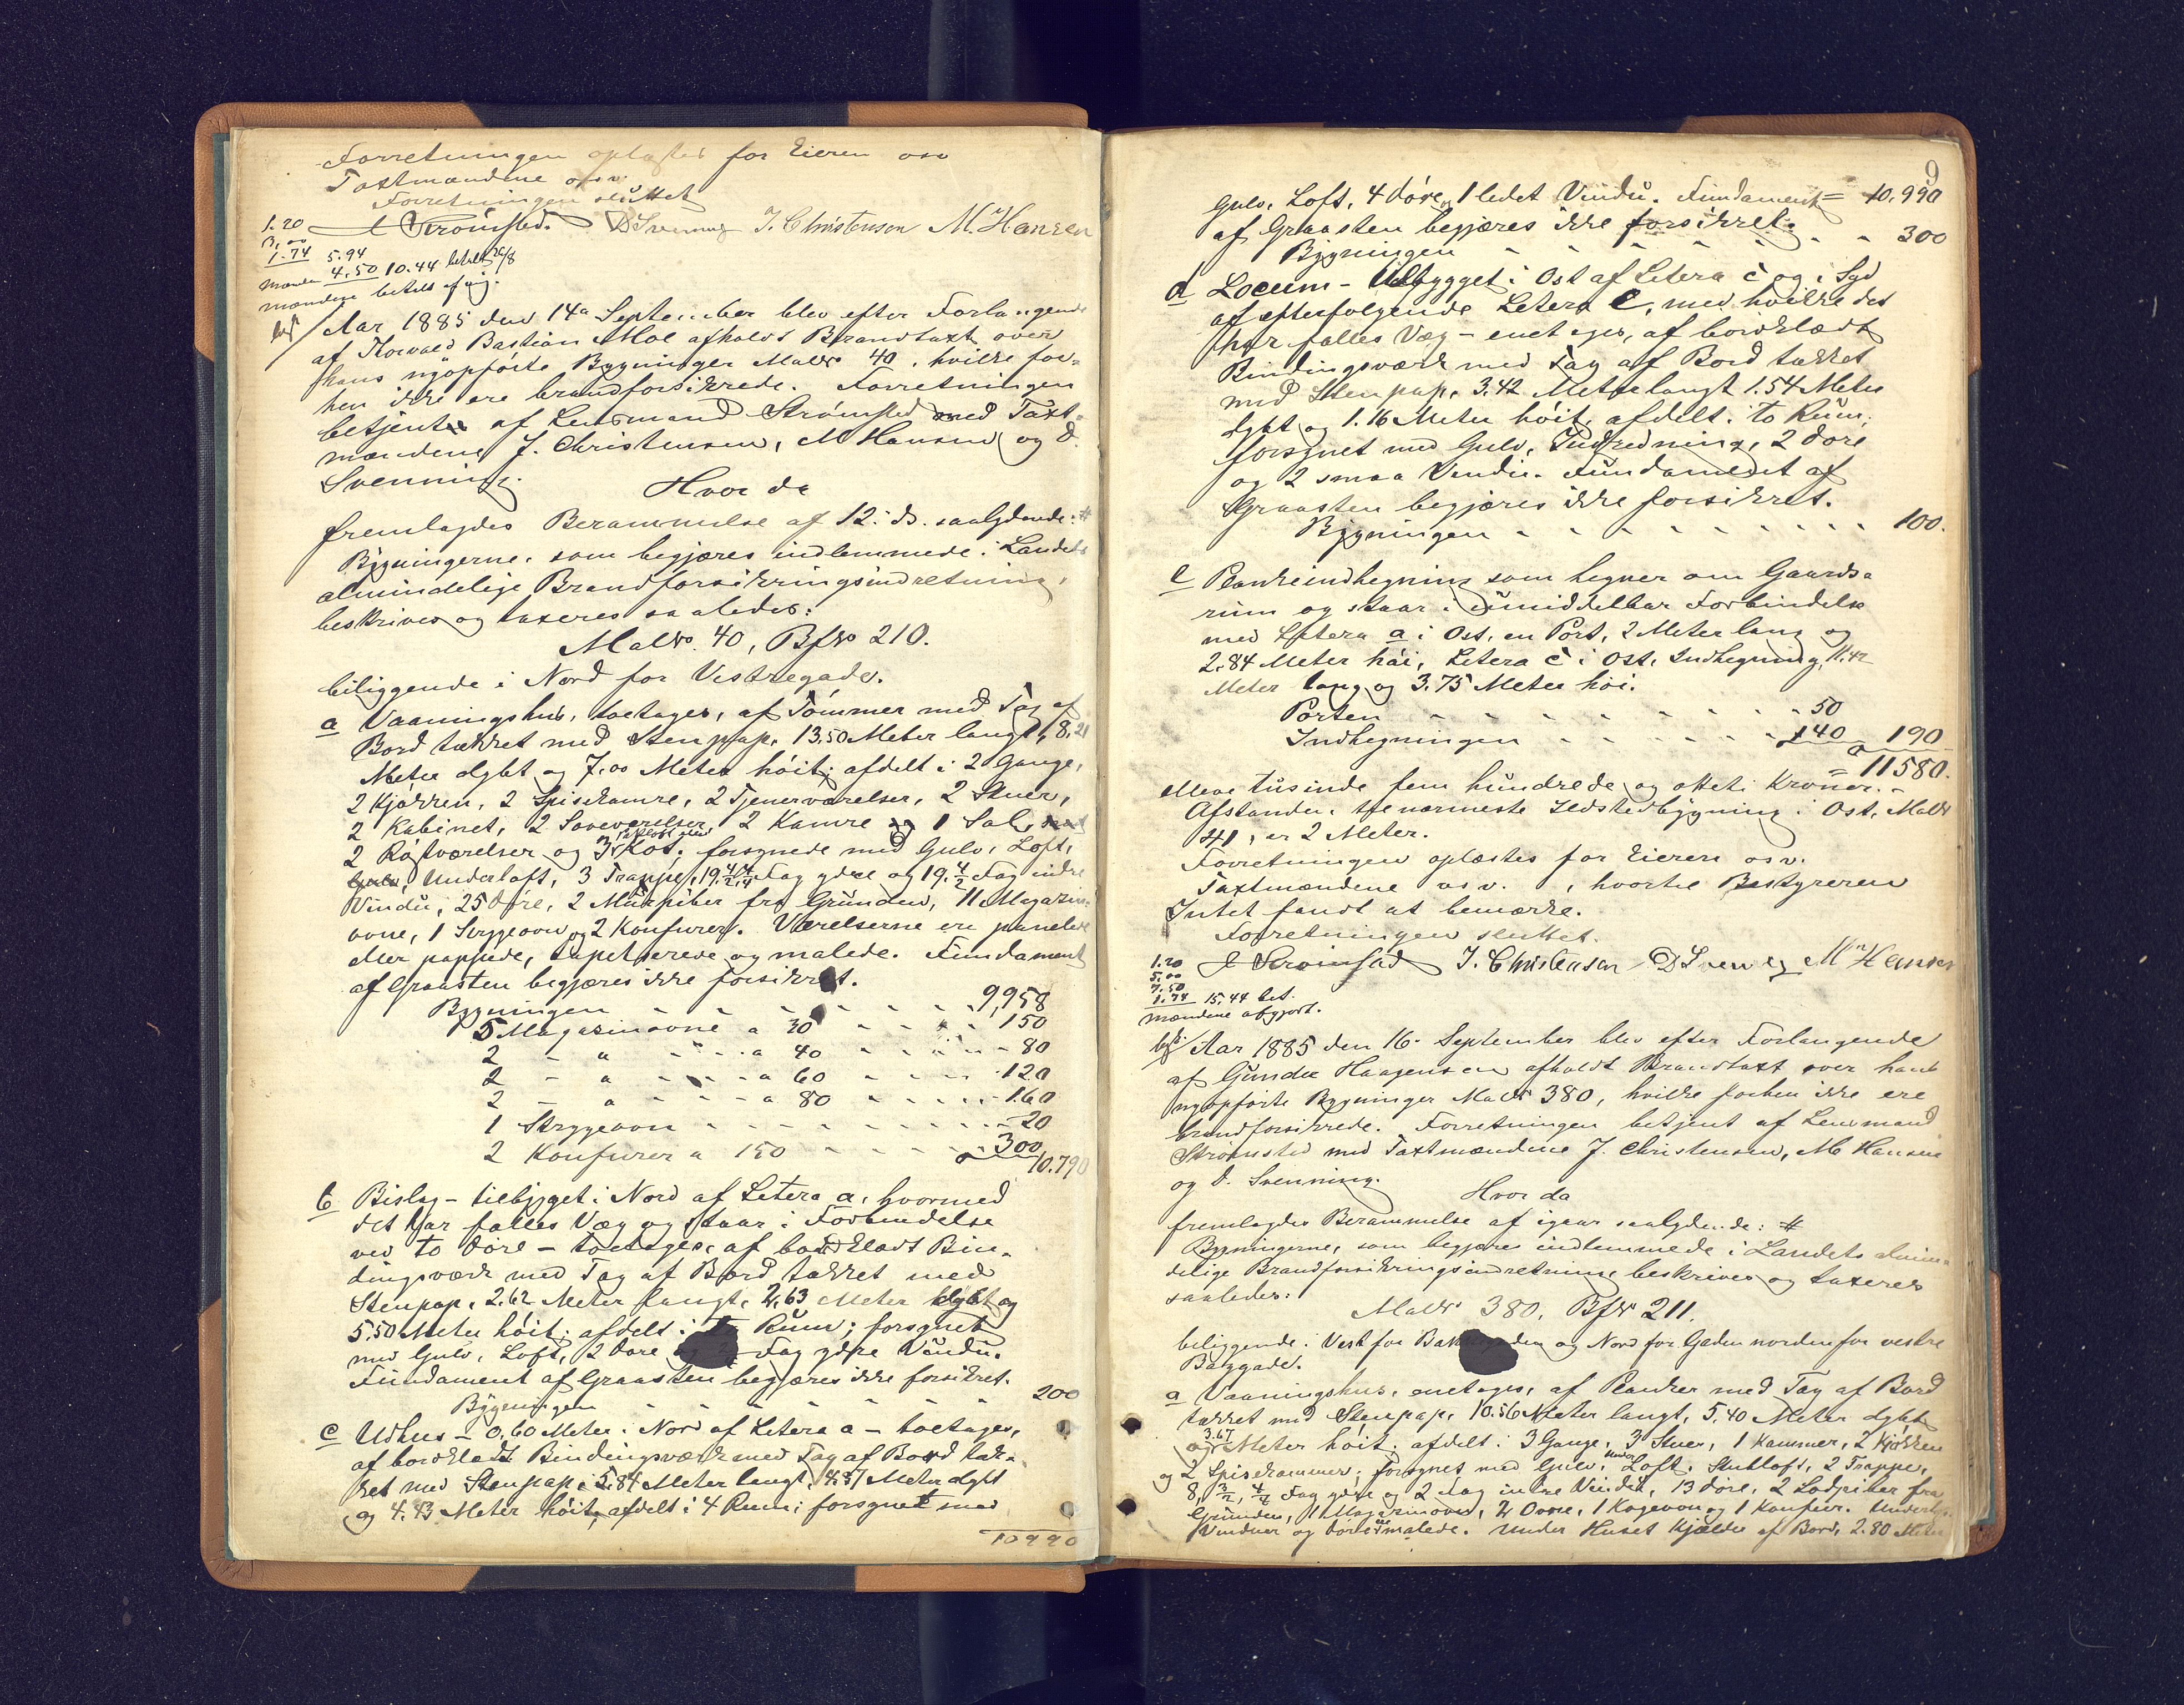 Forretningen oplæstes for Eieren osv
Taxtmændene osv.
Forretningen sluttet
1.20 Strömsted. D Svenning J. Christensen M. Hansen
1.74 5.94
4.50 10.44 betalt 26/8
mændene betalt af mig.
Aar 1885 den 14de September blev efter Forlangende
af Thorvald Bastian Moe afholdt Brandtaxt over
hans nyopførte Bygninger MatNo 40, hvilke for-
hen ikke ere brandforsikrede. Forretningen
betjentes af Lensmand Strömsted med Taxt-
mændene J. Christensen, M Hansen og D.
Svenning.
Hvor da
fremlagdes Berammelse af 12. ds. saalydende: #
Bygningerne, som begjæres indlemmede i Landets
almindelige Brandforsikringsindretning,
beskrives og taxeres saaledes:
MatNo. 40, BfNo 210.
beliggende i Nord for Vestregade.
a Vaaningshus, toetages, af Tömmer med Tag af
Bord tækket med Stenpap, 13.50 Meter langt, 8.21
Meter dybt og 7.00 Meter höit; afdelt i 2 Gange,
2 Kjökken, 2 Spisekamre, 2 Tjenerværelser, 2 Stuer,
2 Kabinet, 2 Soveværelser, 2 Kamre og 1 Sal,
2 Röstværelser og 3 Kot; forsynede med Gulv, Loft,
Underloft, 3 Trapper, 19 Fag ydre og 19 4/2 Fag indre
Vindu, 25 Döre, 2 Murpiber fra Grunden, 11 Magasin-
ovne, 1 Strygeovn og 2 Komfurer. Værelserne ere panelede
eller pappede, tapetserede og malede. Fundament
af Graasten begjæres ikke forsikret.
Bygningen - - - - - 9,958
5 Magasinovne a 30 - - - 150
2 - " - - a 40 - - - 80
2 - " - - a 60 - - - 120
2 - " - - a 80 - - - 160
1 Strygeovn - - - - - 20
2 Komfurer a 150 - - - 300
10.790
b Bislag - tilbygget i Nord af Letera a, hvormed
det har fælles Væg og staar i Forbindelse
ved to Döre - toetages, af bordklædt Bin-
dingsværk med Tag af Bord tækket med
Stenpap, 2.62 Meter langt, 2.63 Meter dybt og
5.50 Meter höit; afdelt i Rum; forsynet
med Gulv, Loft, 2 Döre Fag ydre Vindu.
Fundament af Graasten begjæres ikke forsikret.
Bygningen - - - - - 200
c Udhus - 0,60 Meter i Nord af Letera a - toetages,
af bordklædt Bindingsværk med Tag af Bord tæk-
ket med Stenpap, 5.84 Meter langt, Meter dybt
og 4.43 Meter höit, afdelt i 4 Rum; forsynet med
10990
9
Gulv, Loft, 4 Döre, 1 ledet Vindu. Fundament = 10.990
af Graasten begjæres ikke forsikret.
Bygningen - - - - - 300
d Locum - tilbygget i Ost af Letera c og i Syd
af efterfølgende Letera e, med hvilke det
har fælles Væg - enetages, af bordklædt
Bindingsværk med Tag af Bord tækket
med Stenpap, 3.42 Meter langt 1.54 Meter
dybt og 1.16 Meter höit, afdelt i to Rum;
forsynet med Gulv, Indredning, 2 Döre
og 2 smaa Vindu. Fundamentet af
Graasten begjæres ikke forsikret.
Bygningen - - - - - 100.
e Plankeindhegning som hegner om Gaards-
rum og staar i umiddelbar Forbindelse
med Letera a i Ost, en Port, 2 Meter lang og
2.84 Meter höi, Letera c i Ost, Indhegning, 11.42
Meter lang og 3.75 Meter höi.
Porten - - - - - 50
Indhegningen - - - - - 140 190
= 11580.
elleve tusinde fem hundrede og otteti Kroner. -
Afstanden til nærmeste Ildstedbygning i Ost, MatNo
41, er 2 Meter.
Forretningen oplæstes for Eieren osv.
Taxtmændene osv. , hvortil Bestyreren
Intet fandt at bemærke.
Forretningen sluttet.
1.20 Strömsted J. Christensen D Svenning M Hansen
5.00
7.50
1.74 15.44 bet.
mændene afgjort.
Aar 1885 den 16. September blev efter Forlangende
af Gunder Haagensen afholdt Brandtaxt over hans
nyopførte Bygninger MatNo 380, hvilke forhen ikke ere
brandforsikrede. Forretningen betjent af Lensmand
Strömsted med Taxtmændene J. Christensen, M Hansen
og D. Svenning.
Hvor da
fremlagdes Berammelse af igaar saalydende: #
Bygningerne, som begjæres indlemmede i Landets almin-
delige Brandforsikringsindretning beskrives og taxeres
saaledes:
MatNo 380, BfNo 211.
beliggende i Vest for og Nord for Gaden nordenfor vestre
Baggade.
a Vaaningshus, enetages, af Planker med Tag af Bord
tækket med Stenpap, 10.56 Meter langt, 5.40 Meter dybt
og 3.67 Meter höit; afdelt i 3 Gange, 3 Stuer, 1 Kammer, 2 Kjökken
og 2 Spisekammer; forsynet med Gulv, Loft, Stubloft, 2 Trapper,
8, 3/2, 4/4 Fag ydre og 2 Fag indre Vindu, 13 Döre, 2 Lodpiber fra
Grunden, 1 Magasinovn, 2 Ovne, 1 Kogeovn og 1 Komfur.
Vinduer og Döre malede. Under Huset Kjælder af Bord, 2.80 Meter